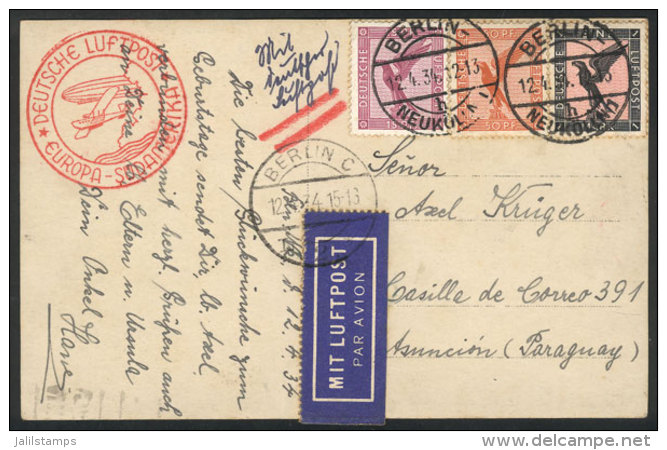 DEUTSCHE LUFTPOST
EUROPA-SÜDAMERIKA
Mit
deutscher
Luftpost
BERLIN
12.4.34.12-13
NEUKÖLLN 1
BERLIN
NEUKÖLLN 1
DEUTSCHE
50 PF
LUFTPOST
BERLIN C
12.4.34.15-13
12.4.34
Die besten Glückwünsche zum
Geburtstage sendet Dir, lb. Axel
verbunden mit herzl. Grüßen auch
an Deine lb Eltern u. Ursula
Dein Onkel Hans.
MIT LUFTPOST
PAR AVION
Señor
Axel Krüger
Casille de Correo 391
Asunción (Paraguay)
jalilstamps
delcampe.net